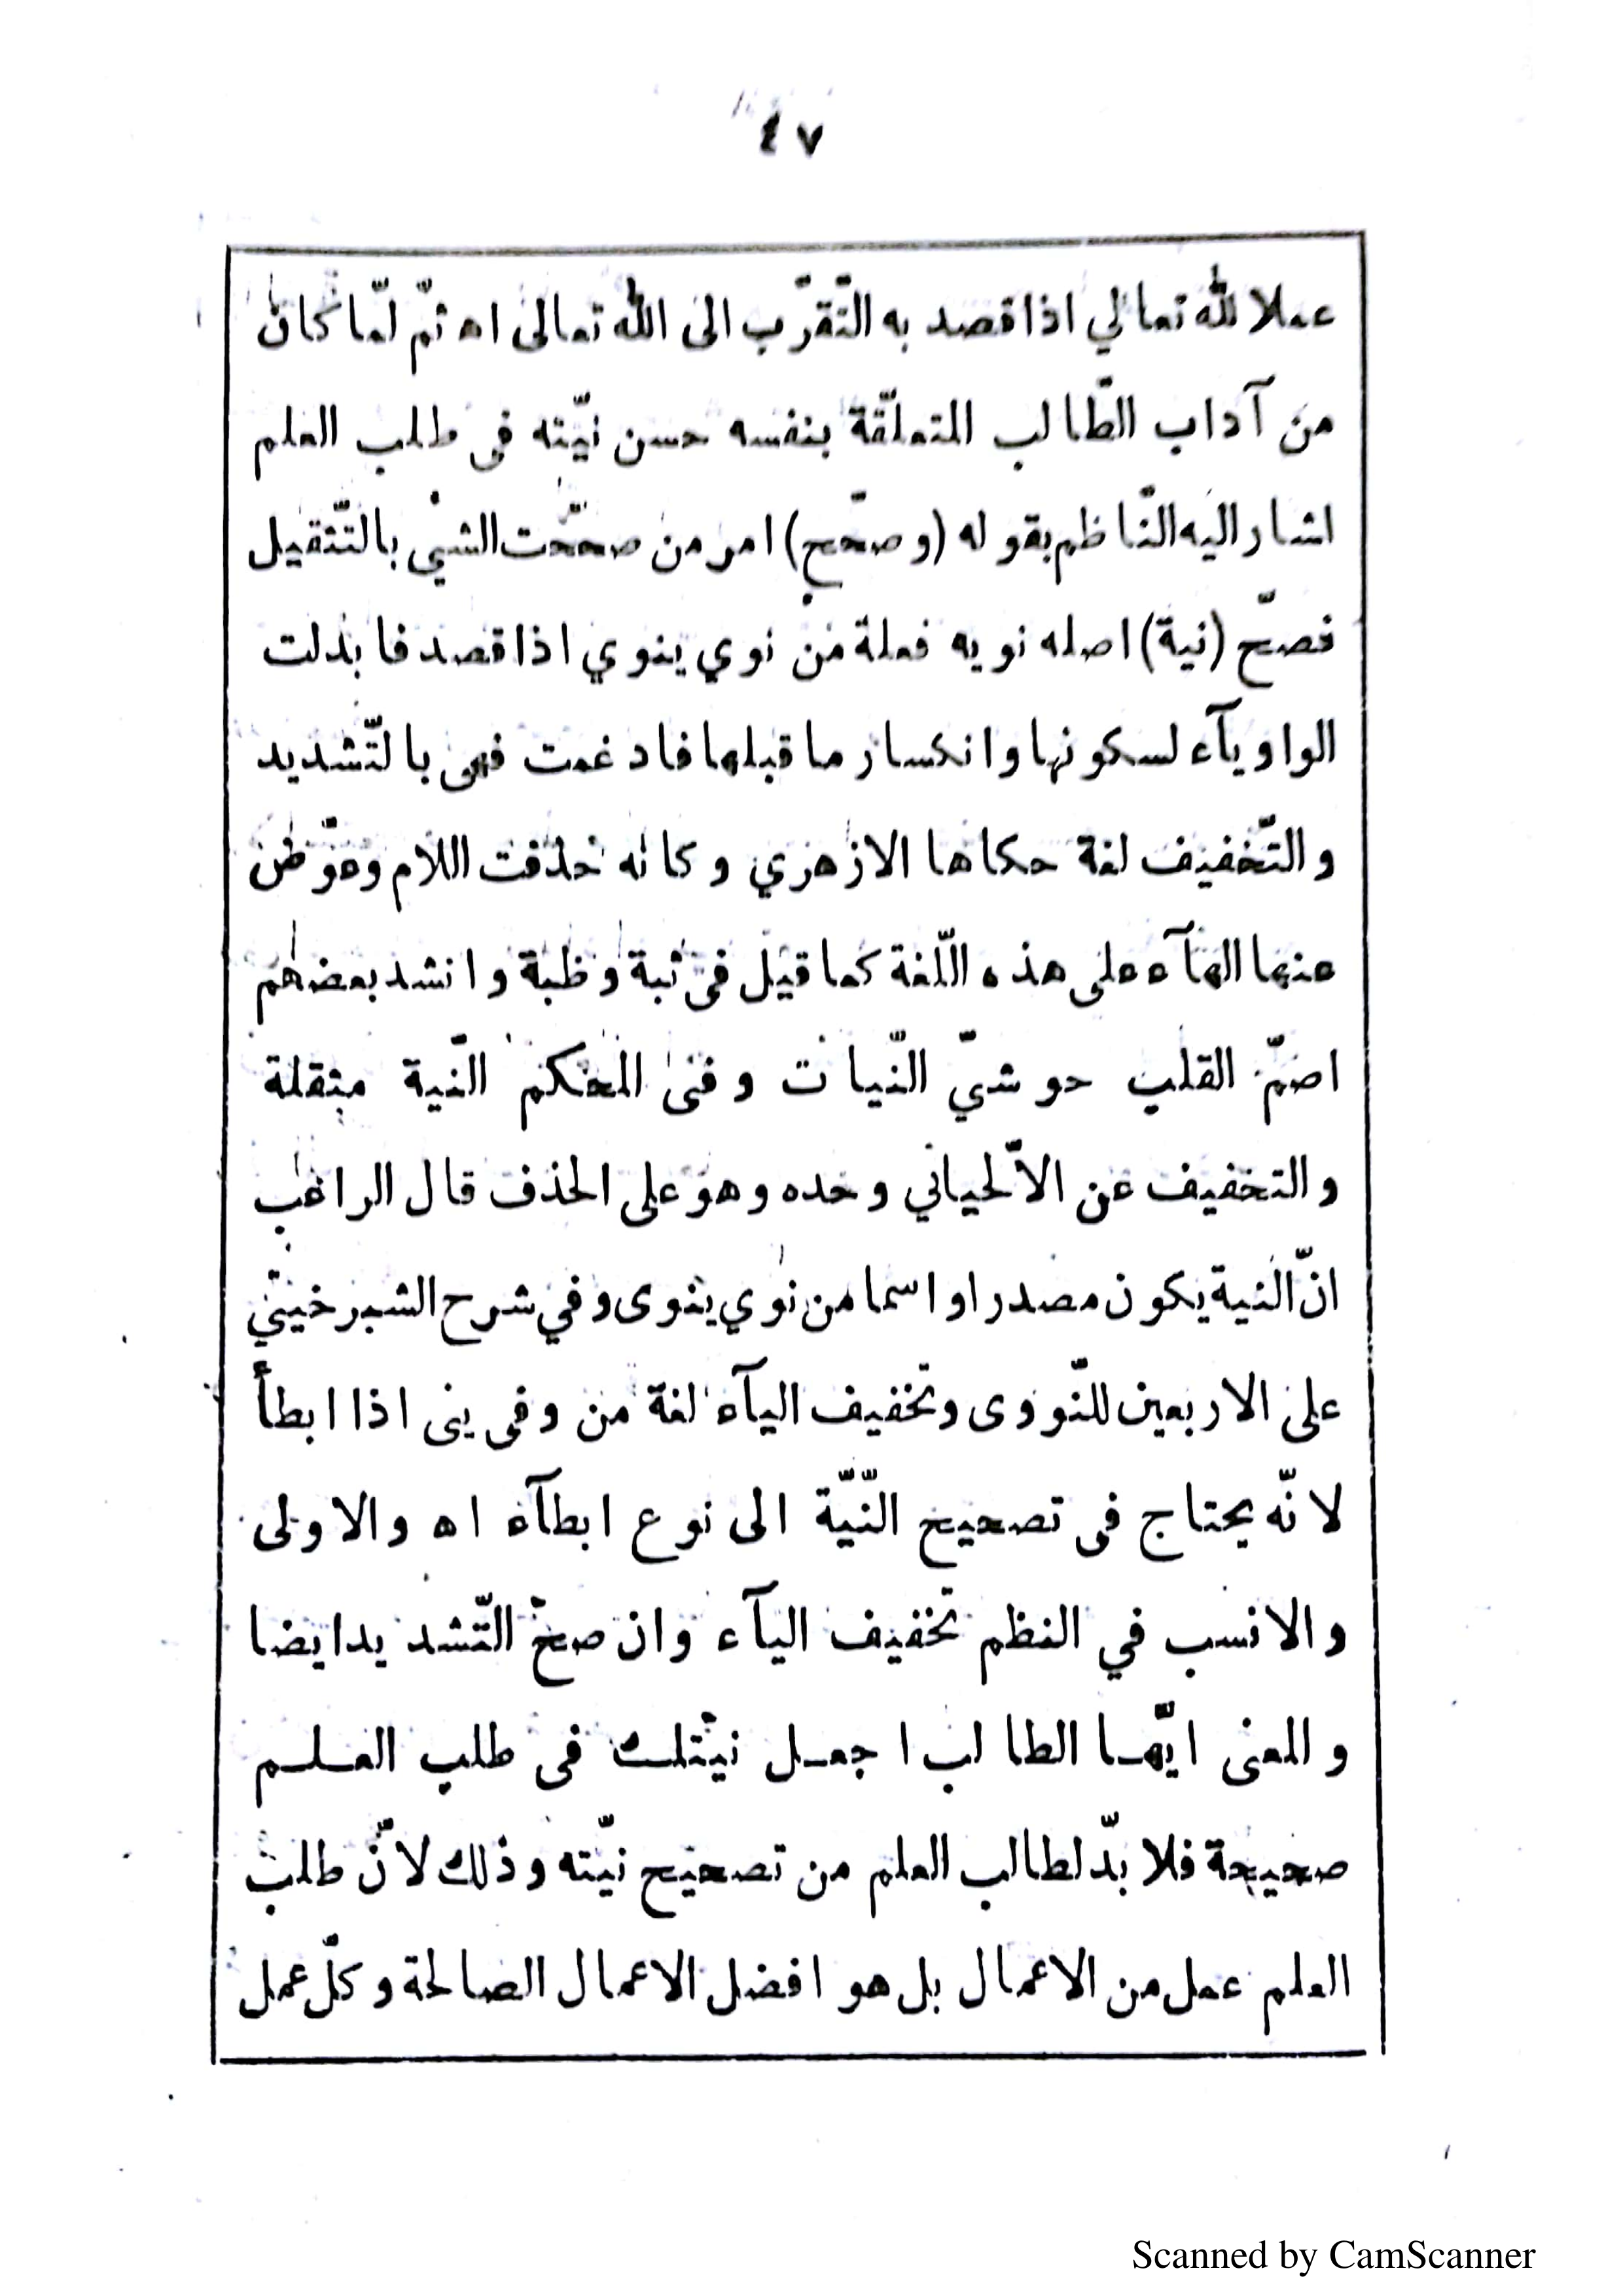 ٤٧
عملا لله تعالي اذا قصد به التّقرّب الى الله تعالى اه ثمّ لمّا كان
من آداب الطّالب المتعلّقة بنفسه حسن نيّته فى طلب العلم
اشار اليه النّاظم بقوله (وصحّح) امر من صحّحت الشيى بالتّثقيل
فصحّ (نية) اصله نويه فعلة من نوي ينوي اذا قصد فابدلت
الواو يآء لسكونها وانكسار ما قبلها فادغمت فهى بالتّشديد
والتّخفيف لغة حكاها الازهري وكانه حذفت اللام وعوّض
عنها الهآء على هذه اللّغة كما قيل فى ثبة وظبة وانشد بعضهم
اصمّ القلب حوشيّ النّيات وفى المحكم النّية مثقلة
والتخفيف عن الاّلحياني وحده وهو على الحذف قال الراغب
انّ النية يكون مصدرا واسما من نوي ينوى وفي شرح الشبرخيتي
على الاربعين للنّووى وتخفيف اليآء لغة من وفى ينى اذا ابطأ
لانّه يحتاج فى تصحيح النّيّة الى نوع ابطآء اه والاولى
والانسب في النظم تخفيف اليآء وان صحّ التّشديد ايضا
والمعنى ايّها الطالب اجعل نيتك فى طلب العلم
صحيحة فلا بدّ لطالب العلم من تصحيح نيّته وذلك لانّ طلب
العلم عمل من الاعمال بل هو افضل الاعمال الصالحة وكلّ عمل
Scanned by CamScanner